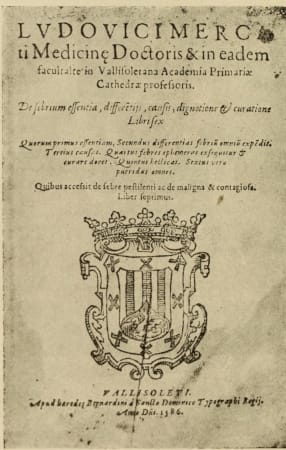 LVDOVICI MERCA
ti Medicinę Doctoris & in eadem
facultate in Vallisoletana Academia Primariæ
Cathedræ professoris.
De febrium essentia, differētijs, causis, dignotione & curatione
Libri sex
Quorum primus essentiam, Secundus differentias febriū omniū expēdit.
Tertius causas. Quartus febres ephemeras exequitur &
curare docet. Quintus hecticas. Sextus vero
putridas omnes.
Quibus accessit de febre pestilenti ac de maligna & contagiosa.
Liber septimus.
VALLISOLETI.
Apud haredes Bernardini à Sancto Dominico Typographi Regij.
Anno Dñi. 1586.